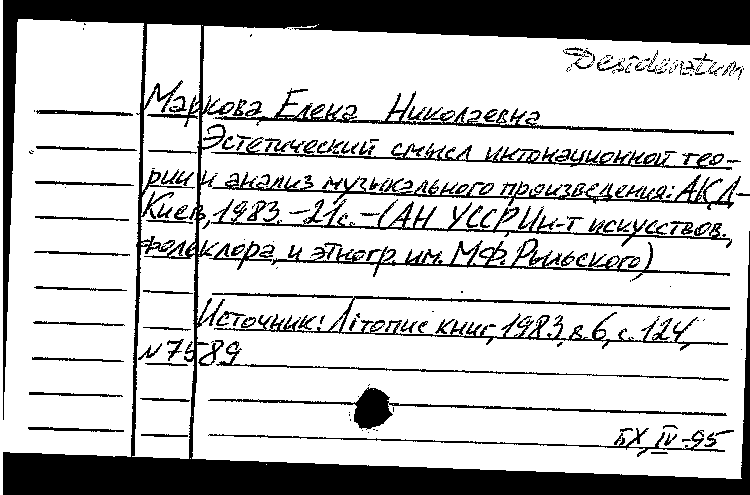 Desideratum
Маркова, Елена Николаевна
Эстетический смысл интонационной тео-
рии и анализ музыкального произведения: АКД-
Киев, 1983. -21с. -(АН УССР, Ин-т искусствов.,
фольклора, и этногр. им. М.Ф. Рыльского)
Источник: Літопис книг, 1983, в. 6, с. 124,
N7589
БХ, IV-95